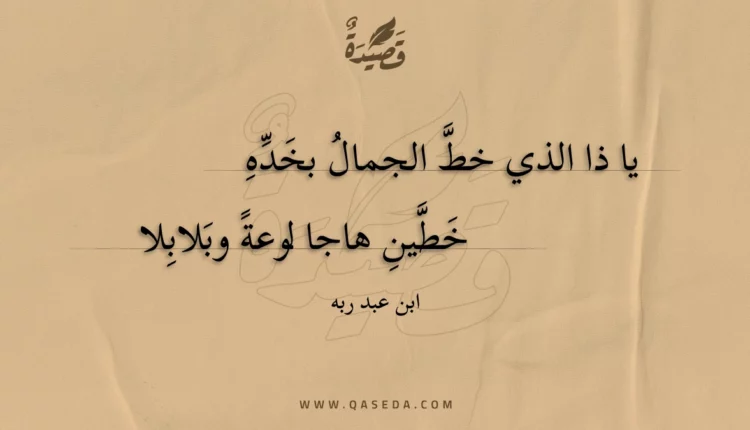 قَصِيدَةٌ
يا ذا الذي خطَّ الجمالُ بخَدِّهِ
خَطَّينِ هاجا لوعةً وبَلابِلا
ابن عبد ربه
WWW.QASEDA.COM